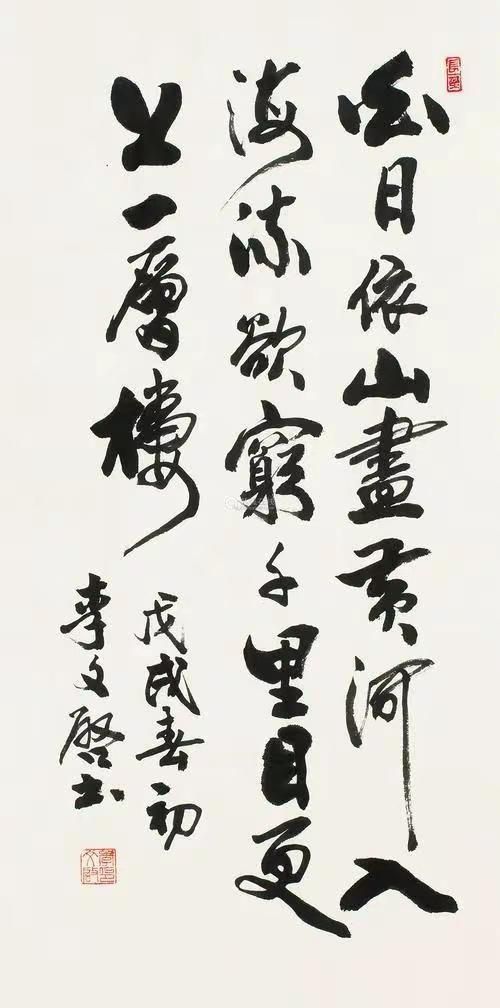 白日依山盡黃河入
海流欲窮千里目更
上一層樓
戊戌春初
李文啟書